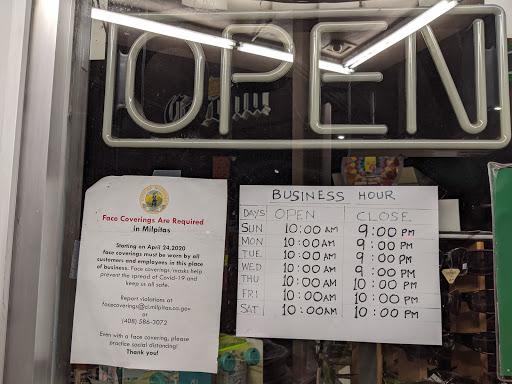 OPEN
Face Coverings Are Required
in Milpitas
Starting on April 24,2020
face coverings must be worn by all
customers and employees in this place
of business. Face coverings/masks help
prevent the spread of Covid-19 and
keep us all safe.
Report violations at
facecoverings@ci.milpitas.ca.gov
or
(408) 586-3072
Even with a face covering, please
practice social distancing!
Thank you!
BUSINESS HOUR
DAYS OPEN CLOSE
SUN 10:00 AM 9:00 PM
MON 10:00 AM 9:00 PM
TUE 10:00 AM 9:00 PM
WED 10:00 AM 9:00 PM
THU 10:00 AM 10:00 PM
FRI 10:00 AM 10:00 PM
SAT 10:00 AM 10:00 PM